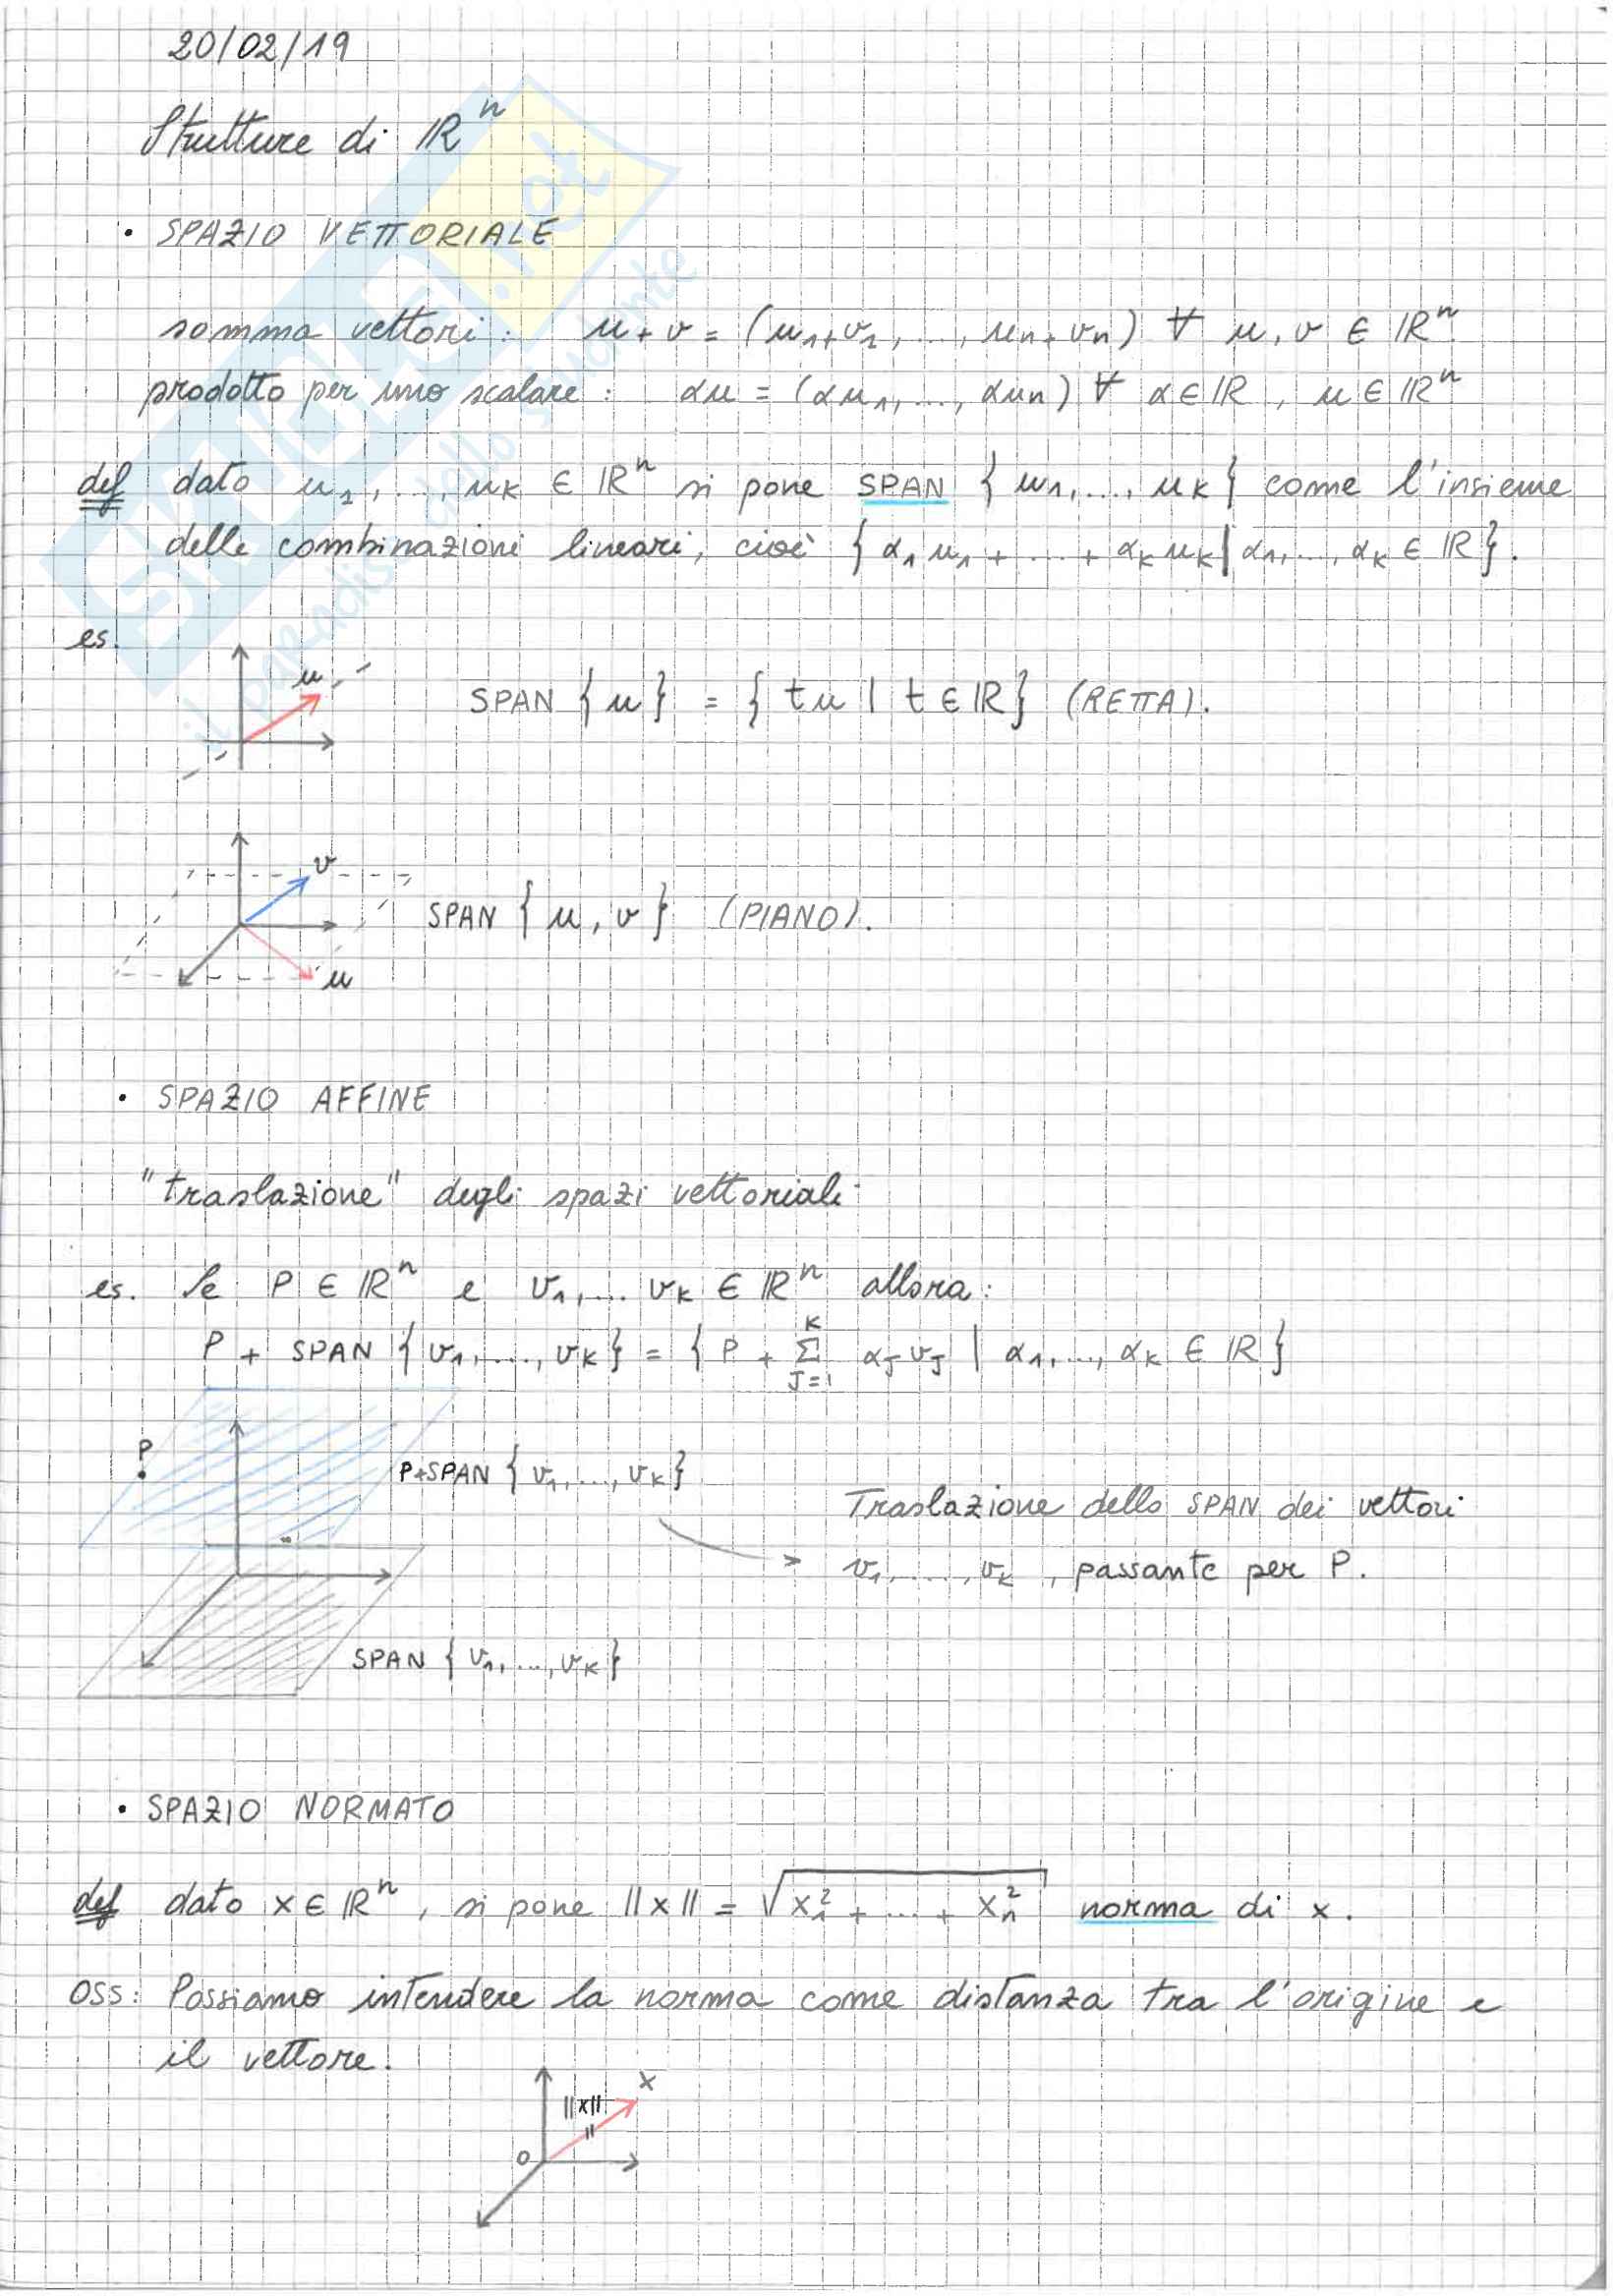 20/02/19
Strutture di ℝⁿ
• SPAZIO VETTORIALE
somma vettori: u + v = (u₁+v₁, ..., uₙ+vₙ) ∀ u, v ∈ ℝⁿ
prodotto per uno scalare: αu = (αu₁, ..., αuₙ) ∀ α ∈ ℝ, u ∈ ℝⁿ
def dato u₁, ..., uₖ ∈ ℝⁿ si pone SPAN {u₁, ..., uₖ} come l'insieme
delle combinazioni lineari, cioè {α₁u₁ + ... + αₖuₖ | α₁, ..., αₖ ∈ ℝ}.
es.
u
SPAN {u} = {tu | t ∈ ℝ} (RETTA).
v
SPAN {u, v} (PIANO).
u
• SPAZIO AFFINE
"traslazione" degli spazi vettoriali
es. Se P ∈ ℝⁿ e v₁, ... vₖ ∈ ℝⁿ allora:
P + SPAN {v₁, ..., vₖ} = {P + Σ_{J=1}^{K} α_J v_J | α₁, ..., αₖ ∈ ℝ}
P
P+SPAN {v₁, ..., vₖ}
Traslazione dello SPAN dei vettori
v₁, ..., vₖ, passante per P.
SPAN {v₁, ..., vₖ}
• SPAZIO NORMATO
def dato x ∈ ℝⁿ, si pone ||x|| = √(x₁² + ... + xₙ²) norma di x.
OSS: Possiamo intendere la norma come distanza tra l'origine e
il vettore.
x
||x||
=
O